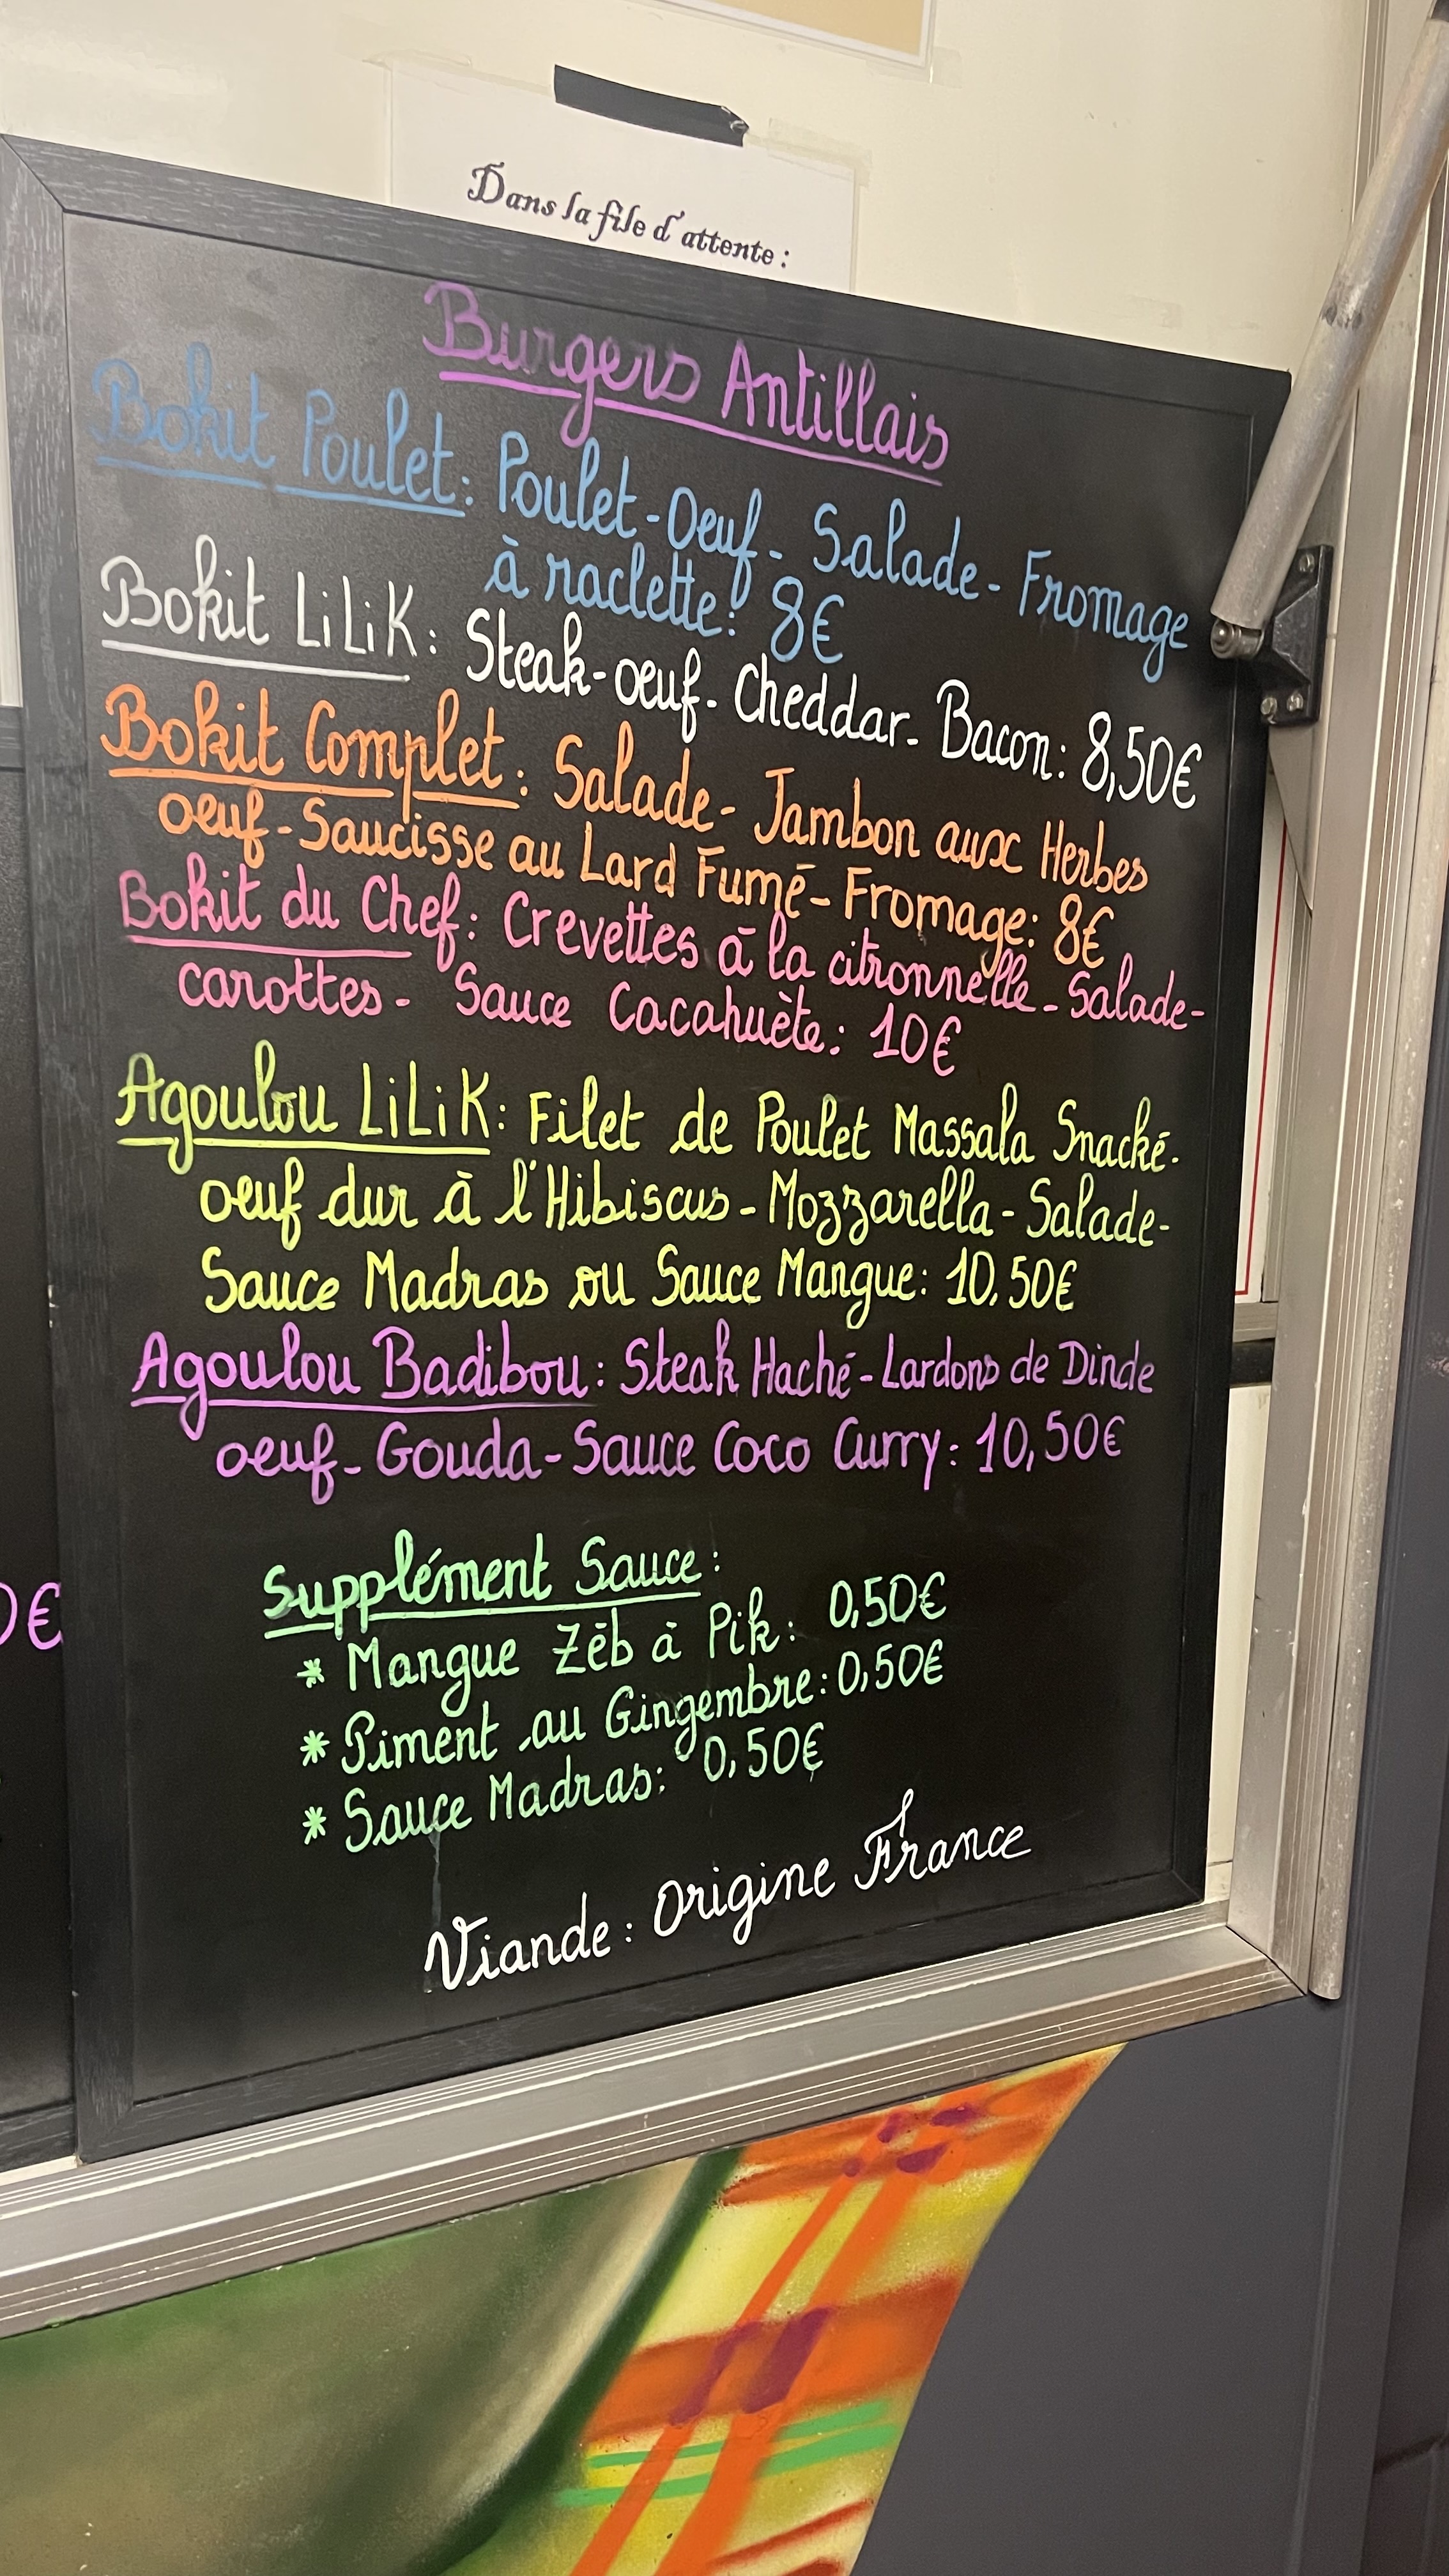 Dans la file d'attente :
Burgers Antillais
Bokit Poulet: Poulet-Oeuf- Salade- Fromage
à raclette: 8€
Bokit LiLiK: Steak-oeuf- Cheddar- Bacon: 8,50€
Bokit Complet: Salade- Jambon aux Herbes
oeuf-Saucisse au Lard Fumé- Fromage: 8€
Bokit du Chef: Crevettes à la citronnelle-Salade-
carottes- Sauce Cacahuète: 10€
Agoulou LiLiK: Filet de Poulet Massala Snacké-
oeuf dur à l'Hibiscus-Mozzarella-Salade-
Sauce Madras ou Sauce Mangue: 10,50€
Agoulou Badibou: Steak Haché-Lardons de Dinde
oeuf- Gouda-Sauce Coco Curry: 10,50€
0€
Supplément Sauce:
* Mangue Zéb à Pik: 0,50€
* Piment au Gingembre: 0,50€
* Sauce Madras: 0,50€
Viande: Origine France